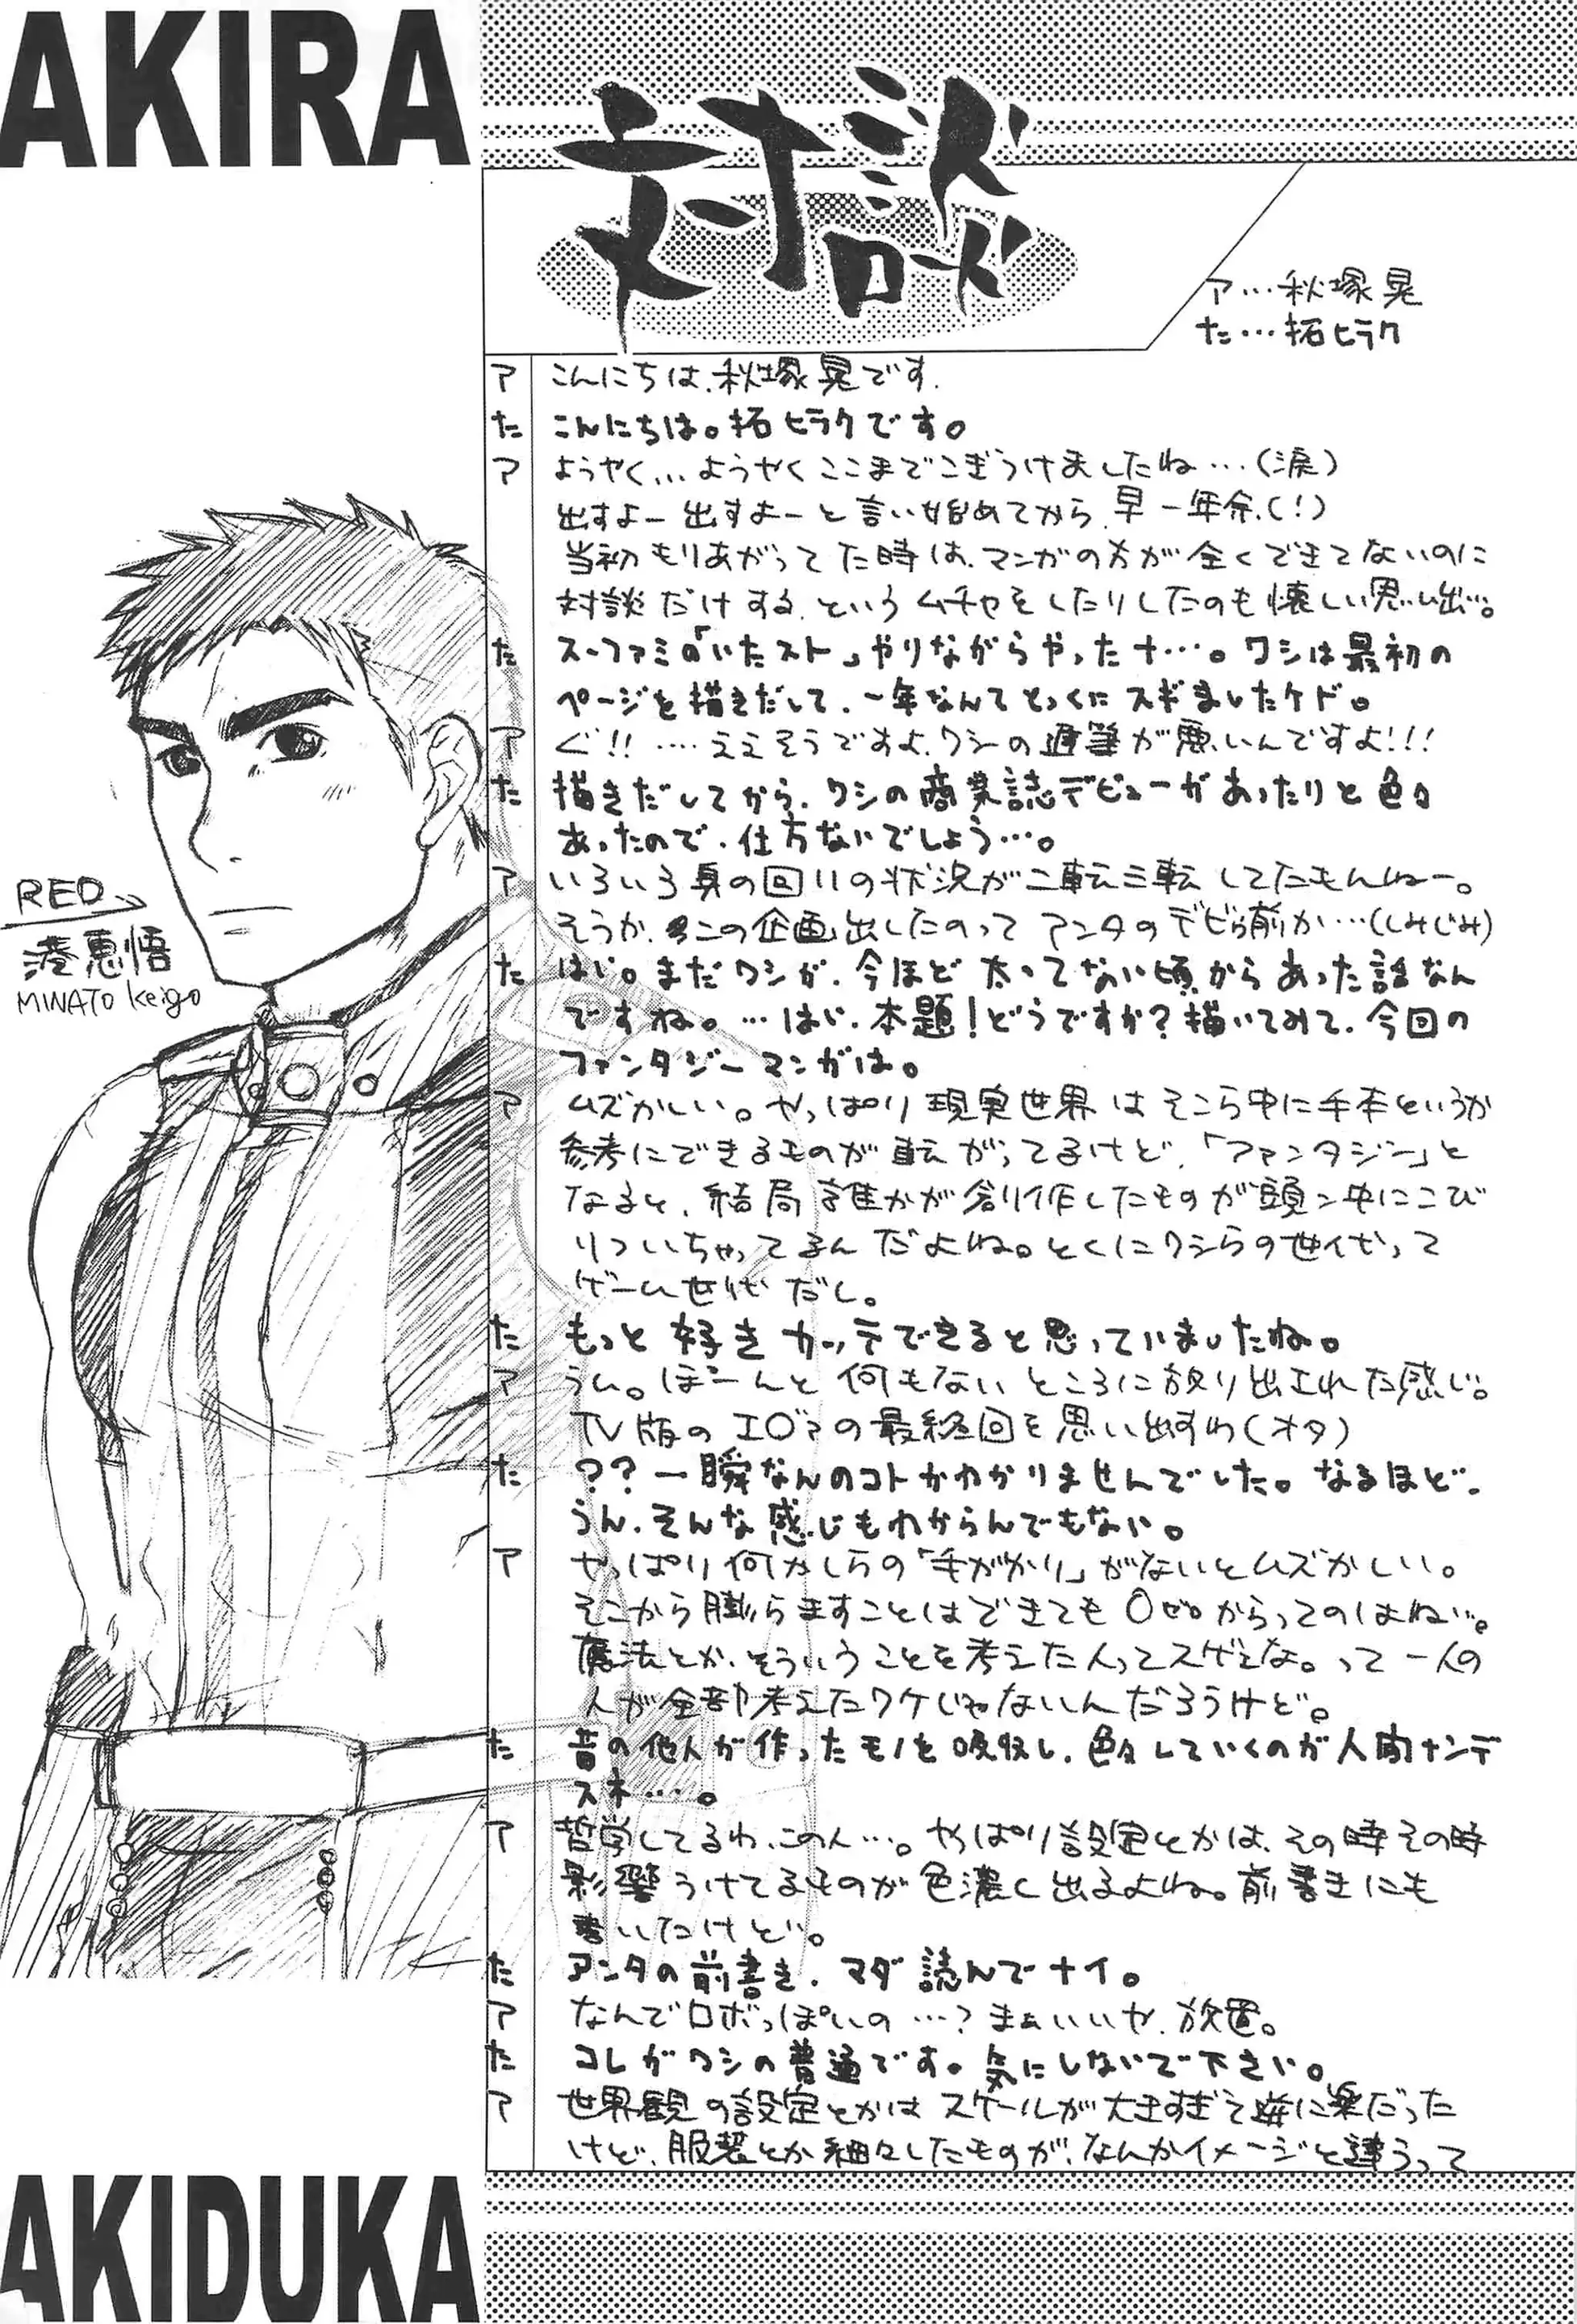 AKIRA
対談
ア…秋塚晃
た…拓ヒラク
ア こんにちは、秋塚晃です。
た こんにちは。拓ヒラクです。
ア ようやく…ようやくここまでこぎつけましたね…(涙)
出すよー出すよーと言い始めてから、早一年余(!)
当初もりあがってた時は、マンガの方が全くできてないのに
対談だけする、というムチャをしたりしたのも懐しい思い出。
た スーファミの「いたスト」やりながらやったナ…。ワシは最初の
ページを描きだして、一年なんてとっくにスギましたケド。
ア ぐ!!…ええそうですよ、ワシの遅筆が悪いんですよ!!!
た 描きだしてから、ワシの商業誌デビューがあったりと色々
あったので、仕方ないでしょう…。
ア いろいろ身の回りの状況が二転三転してたもんねー。
そうか、この企画出したのってアンタのデビュー前か…(しみじみ)
た はい。まだワシが、今ほど太ってない頃からあった話なん
ですね。…はい、本題!どうですか?描いてみて、今回の
ファンタジーマンガは。
ア ムズかしい。やっぱり現実世界はそこら中に手本というか
参考にできるものが転がってるけど、「ファンタジー」と
なると、結局誰かが創作したものが頭ン中にこび
りついちゃってるんだよね。とくにワシらの世代って
ゲーム世代だし。
た もっと好きカッテできると思っていましたね。
ア うム。ぽーんと何もないところに放り出された感じ。
TV版のエ○ァの最終回を思い出すわ(オタ)
た ??一瞬なんのコトかわかりませんでした。なるほど、
うん、そんな感じもわからんでもない。
ア やっぱり何かしらの「手がかり」がないとムズかしい。
そこから膨らますことはできても0ゼロからってのはねぃ。
魔法とか、そういうことを考えた人ってスゲェな。って一人の
人が全部考えたワケじゃないんだろうけど。
た 昔の他人が作ったモノを吸収し、色々していくのが人間ナンデ
スネ…。
ア 哲学してるわ、この人…。やっぱり設定とかは、その時その時
影響うけてるものが色濃く出るよね。前書きにも
書いたけど。
た アンタの前書き、マダ読んでナイ。
ア なんでロボっぽいの…?まぁいいや、放置。
た コレがワシの普通です。気にしないで下さい。
ア 世界観の設定とかはスケールが大きすぎて逆に楽だった
けど、服装とか細々したものが、なんかイメージと違うって
RED
湊恵悟
MINATO Keigo
AKIDUKA